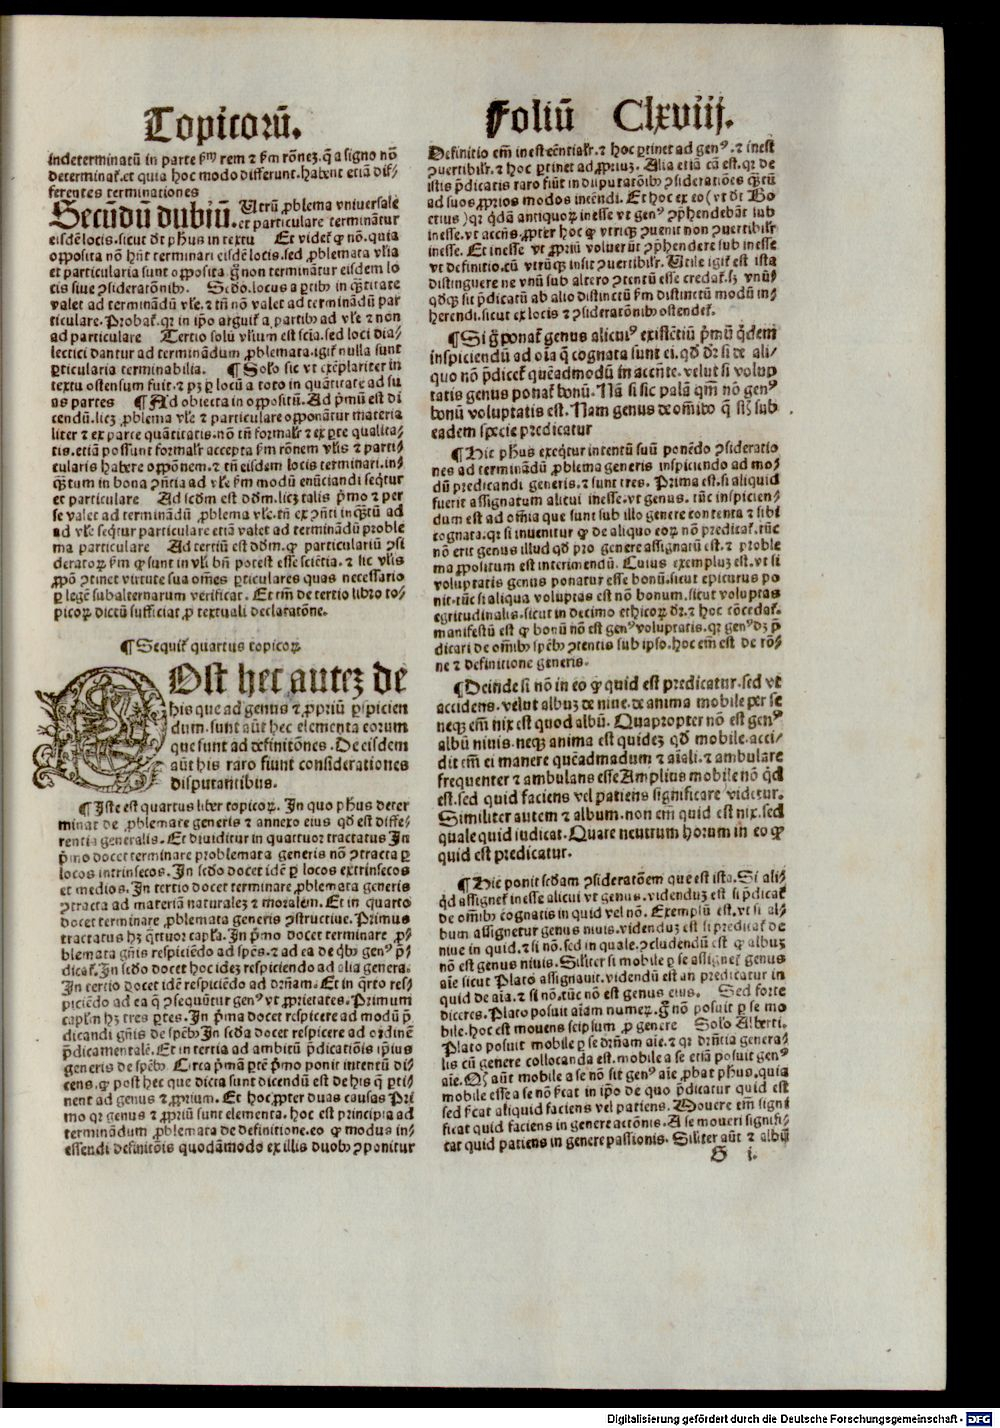 Topicorū.
Foliū Clxviij.
indeterminatū in parte ſm rem ⁊ ſm rōnez. q̄ a signo nō
determinat̄. et quia hoc modo differunt. habent etiā dif⸗
ferentes terminationes
Secūdū dubiū. Utrū ꝓblema vniuersale
et particulare terminātur
eisdē locis. sicut dr̄ pħus in textu Et videt̄ ꝙ nō. quia
opposita nō hn̄t terminari eisdē locis. sed ꝓblemata vl̄ia
et particularia sunt opposita. g̊ non terminātur eisdem lo
cis siue ꝯsideratōnibꝰ. Scd̄o. locus a ꝑtibꝰ in q̄ntitate
valet ad terminādū vl̄e. ⁊ tn̄ nō valet ad terminādū par
ticulare. Probat̄. qꝛ in ip̄o arguit̄ a partibꝰ ad vl̄e ⁊ non
ad particulare Tertio solū vl̄ium est sciā. sed loci dia⸗
lectici dantur ad terminandum ꝓblemata. igit̄ nulla sunt
ꝑticularia terminabilia. ¶ Solo sic vt exēplariter in
textu ostensum fuit. ⁊ pꝫ ꝑ locū a toto in quātitate ad su
as partes ¶ Ad obiecta in oppositū. Ad pͥmū est di
cendū. licꝫ ꝓblema vl̄e ⁊ particulare opponātur materia
liter ⁊ ex parte quātitatis. nō tn̄ formalr̄ ⁊ ex ꝑte qualita⸗
tis. etiā possunt formalr̄ accepta ſm rōnem vl̄is ⁊ parti⸗
cularis habere oppōnem. ⁊ tn̄ eisdem locis terminari. in⸗
q̄ntum in bona ꝯn̄tia ad vl̄e ſm modū enūciandi seq̄tur
et particulare Ad scd̄m est dd̄m. licꝫ talis pͥmo ⁊ per
se valet ad terminādū ꝓblema vl̄e. tn̄ ex ꝯn̄ti inq̄ntū ad
ad vl̄e seq̄tur particulare etiā valet ad terminādū proble
ma particulare Ad tertiū est dd̄m. ꝙ particulariū ꝯsi
deratoꝝ ſm ꝙ sunt in vl̄i bn̄ potest esse sciētia. ⁊ sic vl̄is
ꝓpō ꝯtinet virtute sua om̄es ꝑticulares quas necessario
ꝑ legē subalternarum verificat. Et em̄ de tertio libro to⸗
picoꝝ dictū sufficiat ꝓ textuali declaratōne.
¶ Sequit̄ quartus topicoꝝ
Ost hec autez de
his que ad genus ⁊ ꝓpriū ꝑspicien
dum. sunt aūt hec elementa eorum
que sunt ad definitōnes. De eisdem
aūt his raro fiunt considerationes
disputantibus.
¶ Iste est quartus liber topicoꝝ. In quo pħus deter
minat de ꝓblemate generis ⁊ annexo eius qd̄ est diffe⸗
rentia generalis. Et diuiditur in quattuor tractatus In
pͥmo docet terminare problemata generis nō ꝯtracta ꝑ
locos intrinsecos. In scd̄o docet idē ꝑ locos extrinsecos
et medios. In tertio docet terminare ꝓblemata generis
ꝯtracta ad materiā naturalez ⁊ moralem. Et in quarto
docet terminare ꝓblemata generis ꝯstructiue. Primus
tractatus hꝫ q̄ttuor capl̄a. In pͥmo docet terminare ꝓ⸗
blemata gn̄is respiciēdo ad spēs. ⁊ ad ea de qͥbꝰ genꝰ p̄⸗
dicat̄. In scd̄o docet hoc idez respiciendo ad alia genera.
In tertio docet idē respiciēdo ad dr̄nam. Et in qͣrto res⸗
piciēdo ad ea q̄ ꝯsequūtur genꝰ vt ꝓprietates. Primum
capl̄m hꝫ tres ꝑtes. In pͥma docet respicere ad modū p̄
dicandi gn̄is de spēbꝰ In scd̄a docet respicere ad ordinē
p̄dicamentalē. Et in tertia ad ambitū p̄dicatiōis ip̄ius
generis de spēbꝰ. Circa pͥmam ꝑtē pͥmo ponit intentū di⸗
cens. ꝙ post hec que dicta sunt dicendū est de his q̄ ꝑti⸗
nent ad genus ⁊ ꝓprium. Et hoc ꝓpter duas causas Pri
mo qꝛ genus ⁊ ꝓpriū sunt elementa. hoc est principia ad
terminādum ꝓblemata de definitione. eo ꝙ modus in⸗
essendi definitōis quodāmodo ex illis duobꝰ ꝯponitur
Definitio em̄ inest cēntialr̄. ⁊ hoc ꝑtinet ad genꝰ. ⁊ inest
ꝯuertibilr̄. ⁊ hoc ꝑtinet ad ꝓpriuz. Alia etiā cā est. qꝛ de
istis p̄dicatis raro fiūt in disputatōnibꝰ ꝯsideratiōes q̄ntū
ad suos ꝓprios modos inēndi. Et hoc ex eo (vt dr̄ Bo
etius) qꝛ qͥdā antiquoꝝ inesse vt genꝰ ꝯp̄hendebāt sub
inesse. vt acn̄s. ꝓpter hoc ꝙ vtriqꝫ ꝯuenit non ꝯuertibilr̄
inesse. Et inesse vt ꝓpriū voluerūt ꝯp̄hendere sub inesse
vt definitio. cū vtrūqꝫ insit ꝯuertibilr̄. Utile igit̄ est ista
distinguere ne vnū sub altero ꝯtentū esse credat̄. sꝫ vnūꝰ
qd̄qꝫ sit p̄dicatū ab alio distinctū ſm distinctū modū in⸗
herendi. sicut ex locis ⁊ ꝯsideratōnibꝰ ostendet̄.
¶ Si g̊ ponat̄ genus alicuiꝰ existētiū pͥmū qͥdem
inspiciendū ad oīa q̄ cognata sunt ei. qd̄ dr̄ si de ali⸗
quo nō p̄dicet̄ quēadmodū in accn̄te. velut si volup
tatis genus ponat̄ bonū. Nā si sic palā qm̄ nō genꝰ
bonū voluptatis est. Nam genus de om̄ibꝰ q̄ sūt sub
eadem specie predicatur
¶ Hic pħus exeq̄tur intentū suū ponēdo ꝯsideratio
nes ad terminādū ꝓblema generis inspiciendo ad mo⸗
dū predicandi generis. ⁊ sunt tres. Prima est. si aliquid
fuerit assignatum alicui inesse. vt genus. tūc inspicien⸗
dum est ad omnia que sunt sub illo genere contenta ⁊ sibi
cognata. qꝛ si inuenitur ꝙ de aliquo eoꝝ nō predicat̄. tūc
nō erit genus illud qd̄ pro genere assignatū est. ⁊ proble
ma ꝓpositum est interimendū. Cuius exempluz est. vt si
voluptatis genus ponatur esse bonū. sicut epicurus po
nit. tūc si aliqua voluptas est nō bonum. sicut voluptas
egritudinalis. sicut in decimo ethicoꝝ dr̄. ⁊ hoc cōcedat̄.
manifestū est ꝙ bonū nō est genꝰ voluptatis. qꝛ genꝰ dꝫ p̄
dicari de om̄ibꝰ spēbꝰ ꝯtentis sub ipso. hoc em̄ est de rō⸗
ne ⁊ definitione generis.
¶ Deinde si nō in eo ꝙ quid est predicatur. sed vt
accidens. velut albuz de niue. de anima mobile per se
neqꝫ em̄ nix est quod albū. Quapropter nō est genꝰ
albū niuis. neqꝫ anima est quidez qd̄ mobile. acci⸗
dit em̄ ei manere quēadmadum ⁊ aīali. ⁊ ambulare
frequenter ⁊ ambulans esse Amplius mobile nō qͥd
est. sed quid faciens vel patiens significare videtur.
Similiter autem ⁊ album. non em̄ quid est nix. sed
quale quid iudicat. Quare neutrum horum in eo ꝙ
quid est predicatur.
¶ Hic ponit scd̄am ꝯsideratōem que est ista. Si ali⸗
qͥd assignet̄ inesse alicui vt genus. videnduz est si p̄dicat̄
de om̄ibꝰ cognatis in quid vel nō. Exemplū est. vt si al⸗
bum assignetur genus niuis. videnduz est si predicat̄ de
niue in quid. ⁊ si nō. sed in quale. ꝯcludendū est ꝙ albuz
nō est genus niuis. Sil̄iter si mobile ꝑ se assignet̄ genus
aīe sicut Plato assignauit. videndū est an predicatur in
quid de aīa. ⁊ si nō. tūc nō est genus eius. Sed forte
diceres. Plato posuit aīam numeꝝ. g̊ nō posuit ꝑ se mo
bile. hoc est mouens seipsum ꝓ genere Solo Alberti.
Plato posuit mobile ꝑ se dr̄nam aīe. ⁊ qꝛ dr̄ntia genera⸗
lis cū genere collocanda est. mobile a se etiā posuit genꝰ
aīe. Qꝫ aūt mobile a se nō sit genꝰ aīe ꝓbat pħus. quia
mobile esse a se nō ſicat in ip̄o de quo p̄dicatur quid est
sed ſicat aliquid faciens vel patiens. Mouere em̄ signi
ficat quid faciens in genere actōnis. A se moueri signifi⸗
cat quid patiens in genere passionis. Sil̄iter aūt ⁊ albū
S i.
Digitalisierung gefördert durch die Deutsche Forschungsgemeinschaft - DFG